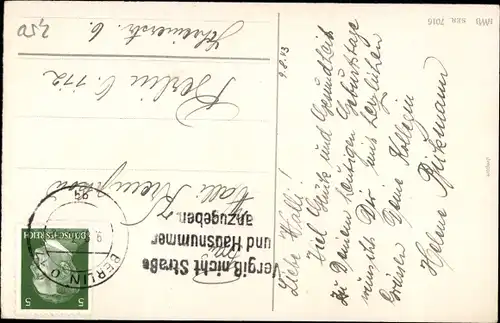 9.8.43
Liebe Walli!
Viel Glück und Gesundheit
zu Deinem heutigen Geburtstage
wünscht Dir mit herzlichen
Grüssen Deine Kollegin
Helene
Walli
Berlin O.112
6.
2,50
IWB SER. 7016
Vergiß nicht Straße
und Hausnummer
anzugeben
BERLIN O 17
DEUTSCHES REICH
5 5